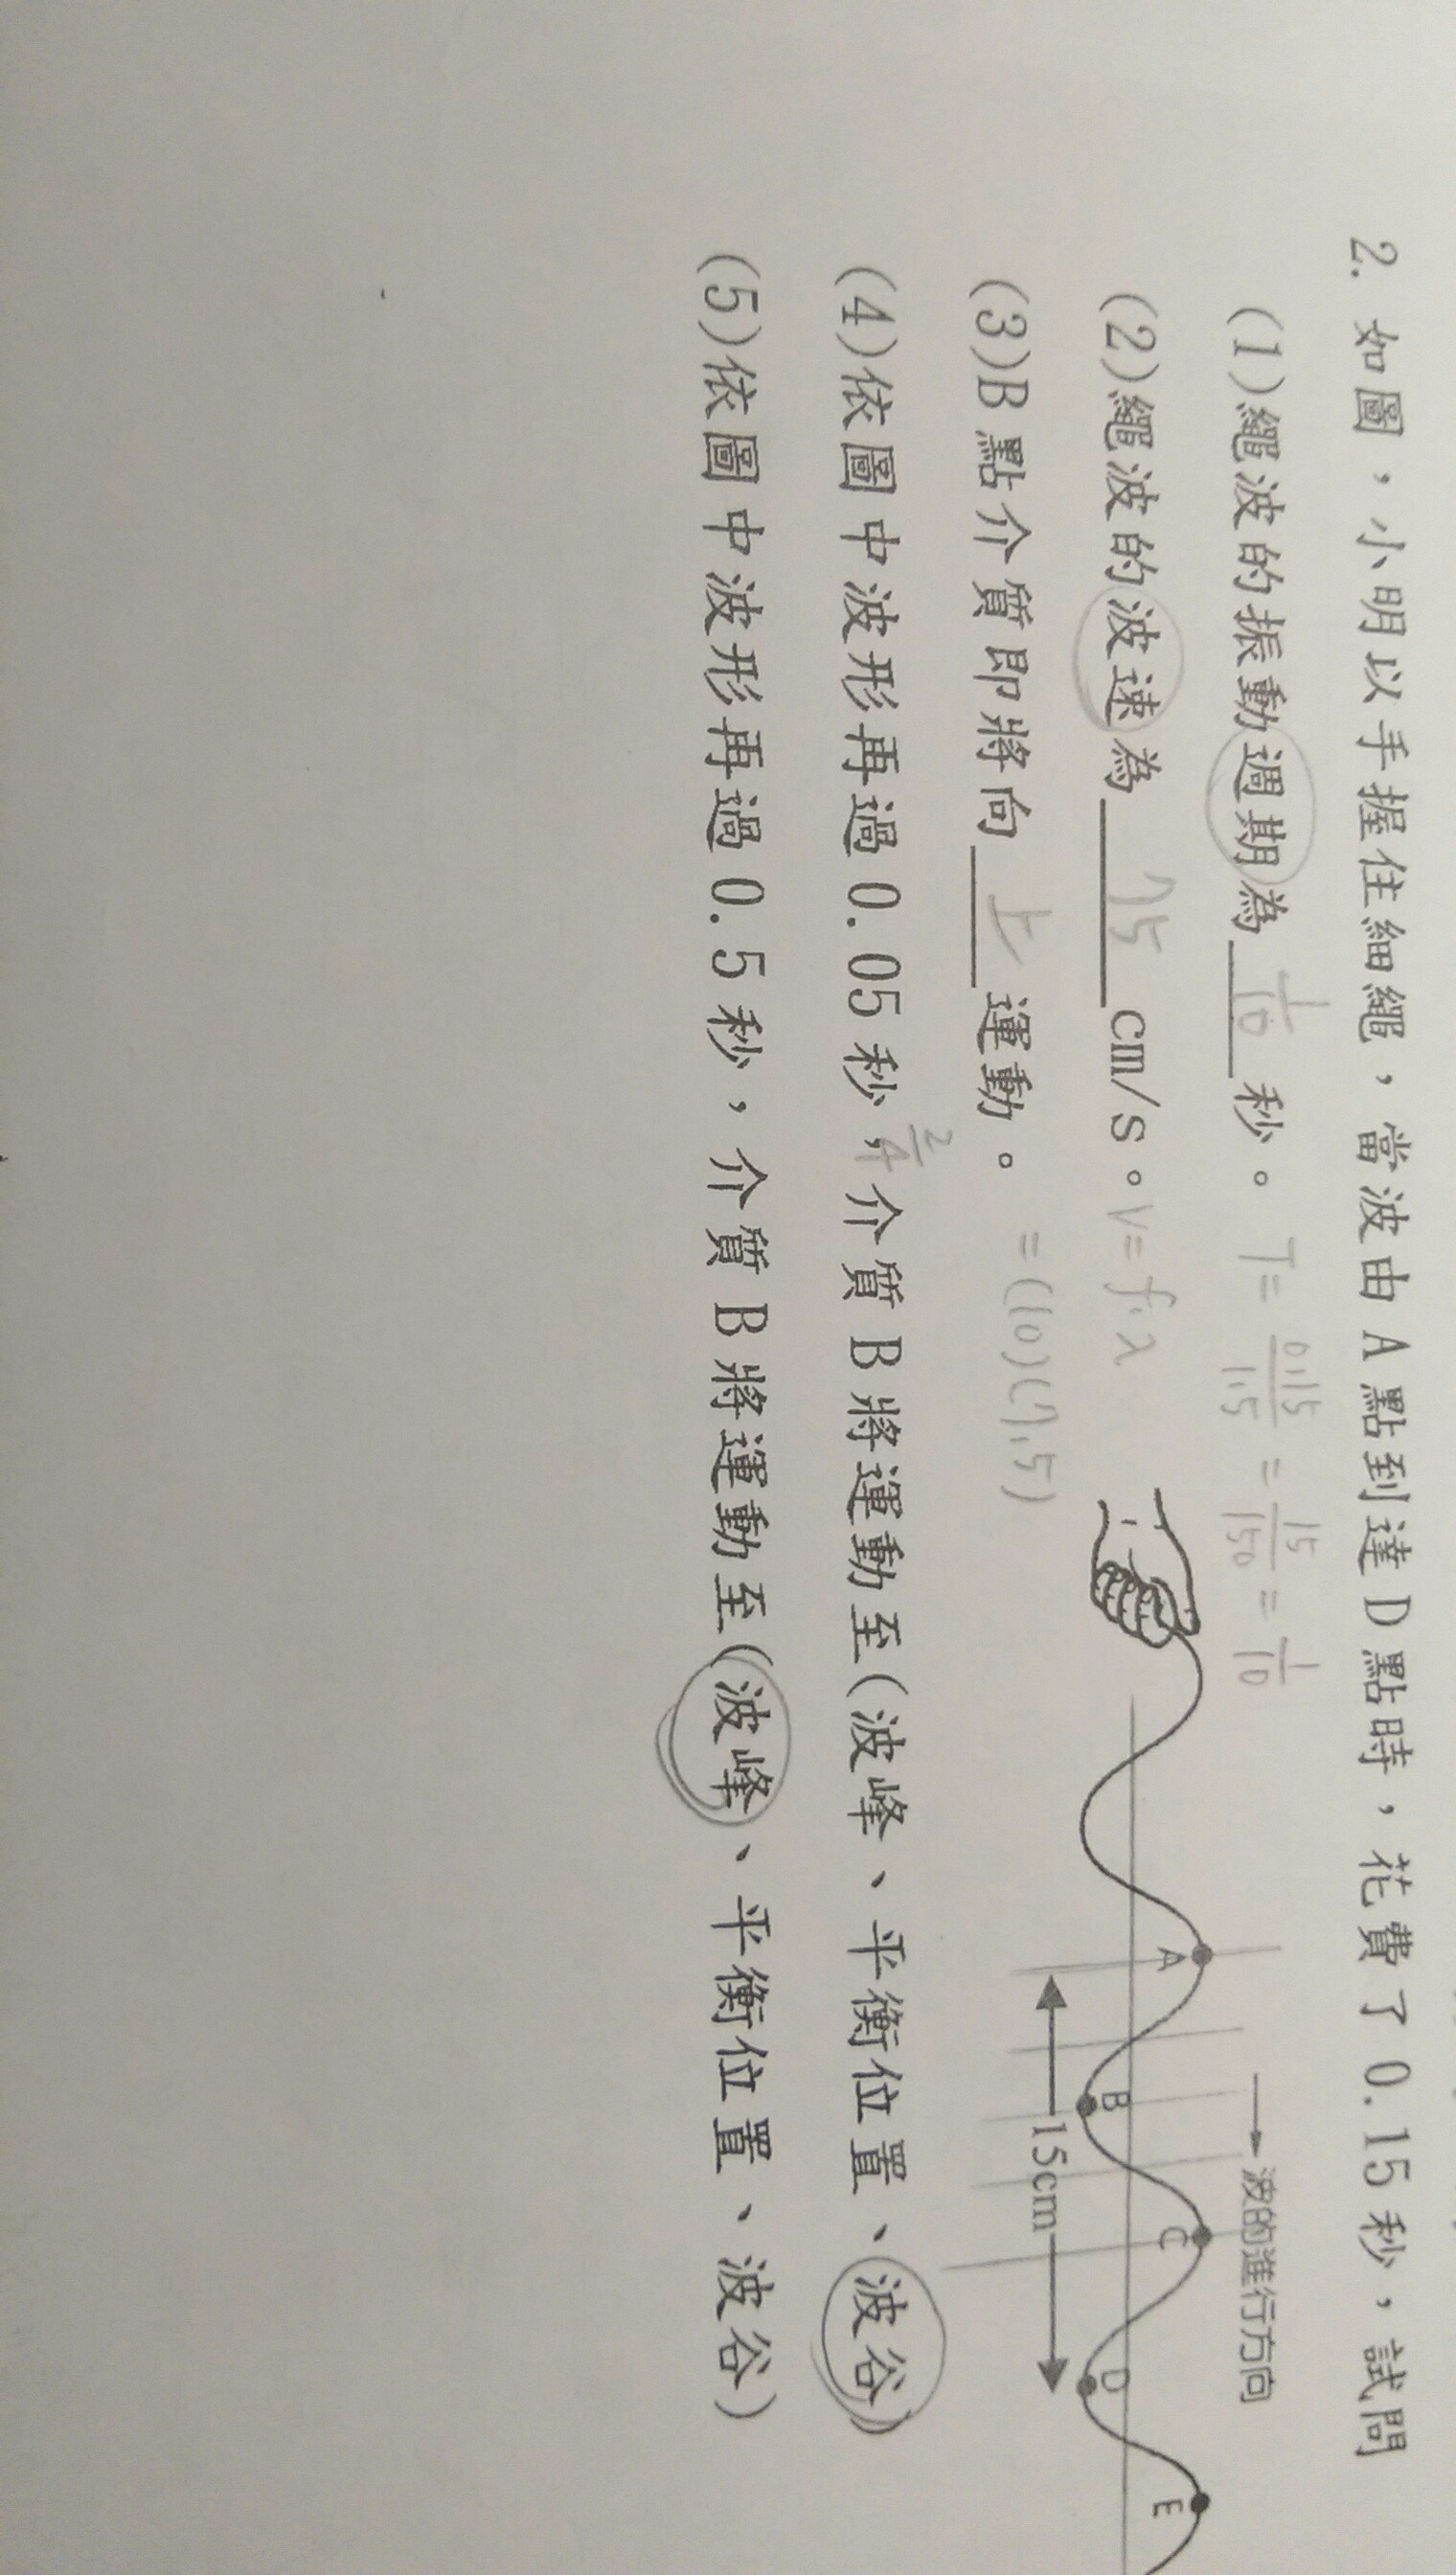 2. 如圖，小明以手握住細繩，當波由 A 點到達 D 點時，花費了 0.15 秒，試問
(1)繩波的振動週期為 1/10 秒。 T= 0.15/1.5 = 15/150 = 1/10
(2)繩波的波速為 75 cm/s。 V= f·λ
= (10)(7.5)
(3)B 點介質即將向 上 運動。
波的進行方向
A
B
C
D
E
15cm
(4)依圖中波形再過 0.05 秒，介質 B 將運動至(波峰、平衡位置、波谷)
2/4
(5)依圖中波形再過 0.5 秒，介質 B 將運動至(波峰、平衡位置、波谷)